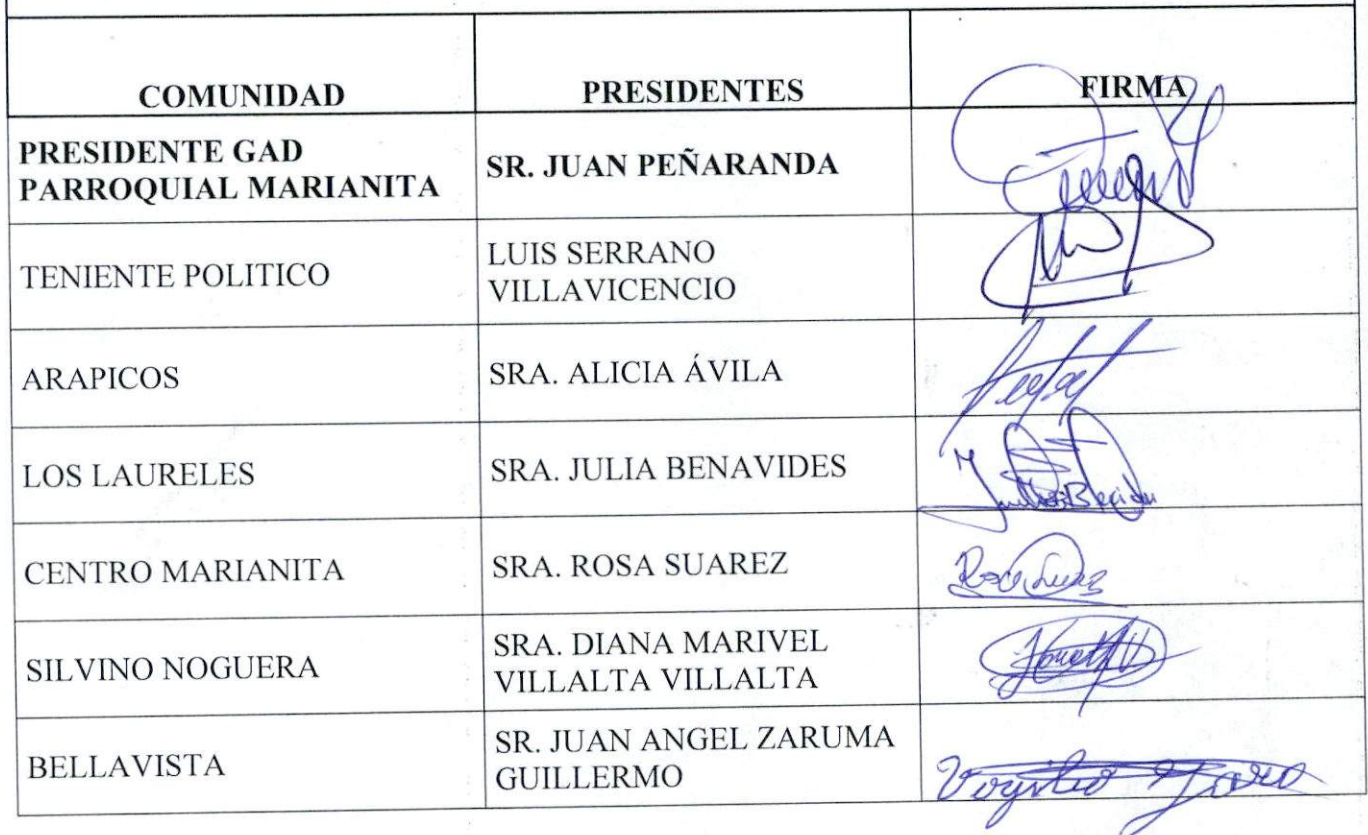 COMUNIDAD PRESIDENTES FIRMA
PRESIDENTE GAD
PARROQUIAL MARIANITA
SR. JUAN PEÑARANDA
TENIENTE POLITICO
LUIS SERRANO
VILLAVICENCIO
ARAPICOS
SRA. ALICIA ÁVILA
LOS LAURELES
SRA. JULIA BENAVIDES
CENTRO MARIANITA
SRA. ROSA SUAREZ
Rosa Suarez
SILVINO NOGUERA
SRA. DIANA MARIVEL
VILLALTA VILLALTA
BELLAVISTA
SR. JUAN ANGEL ZARUMA
GUILLERMO